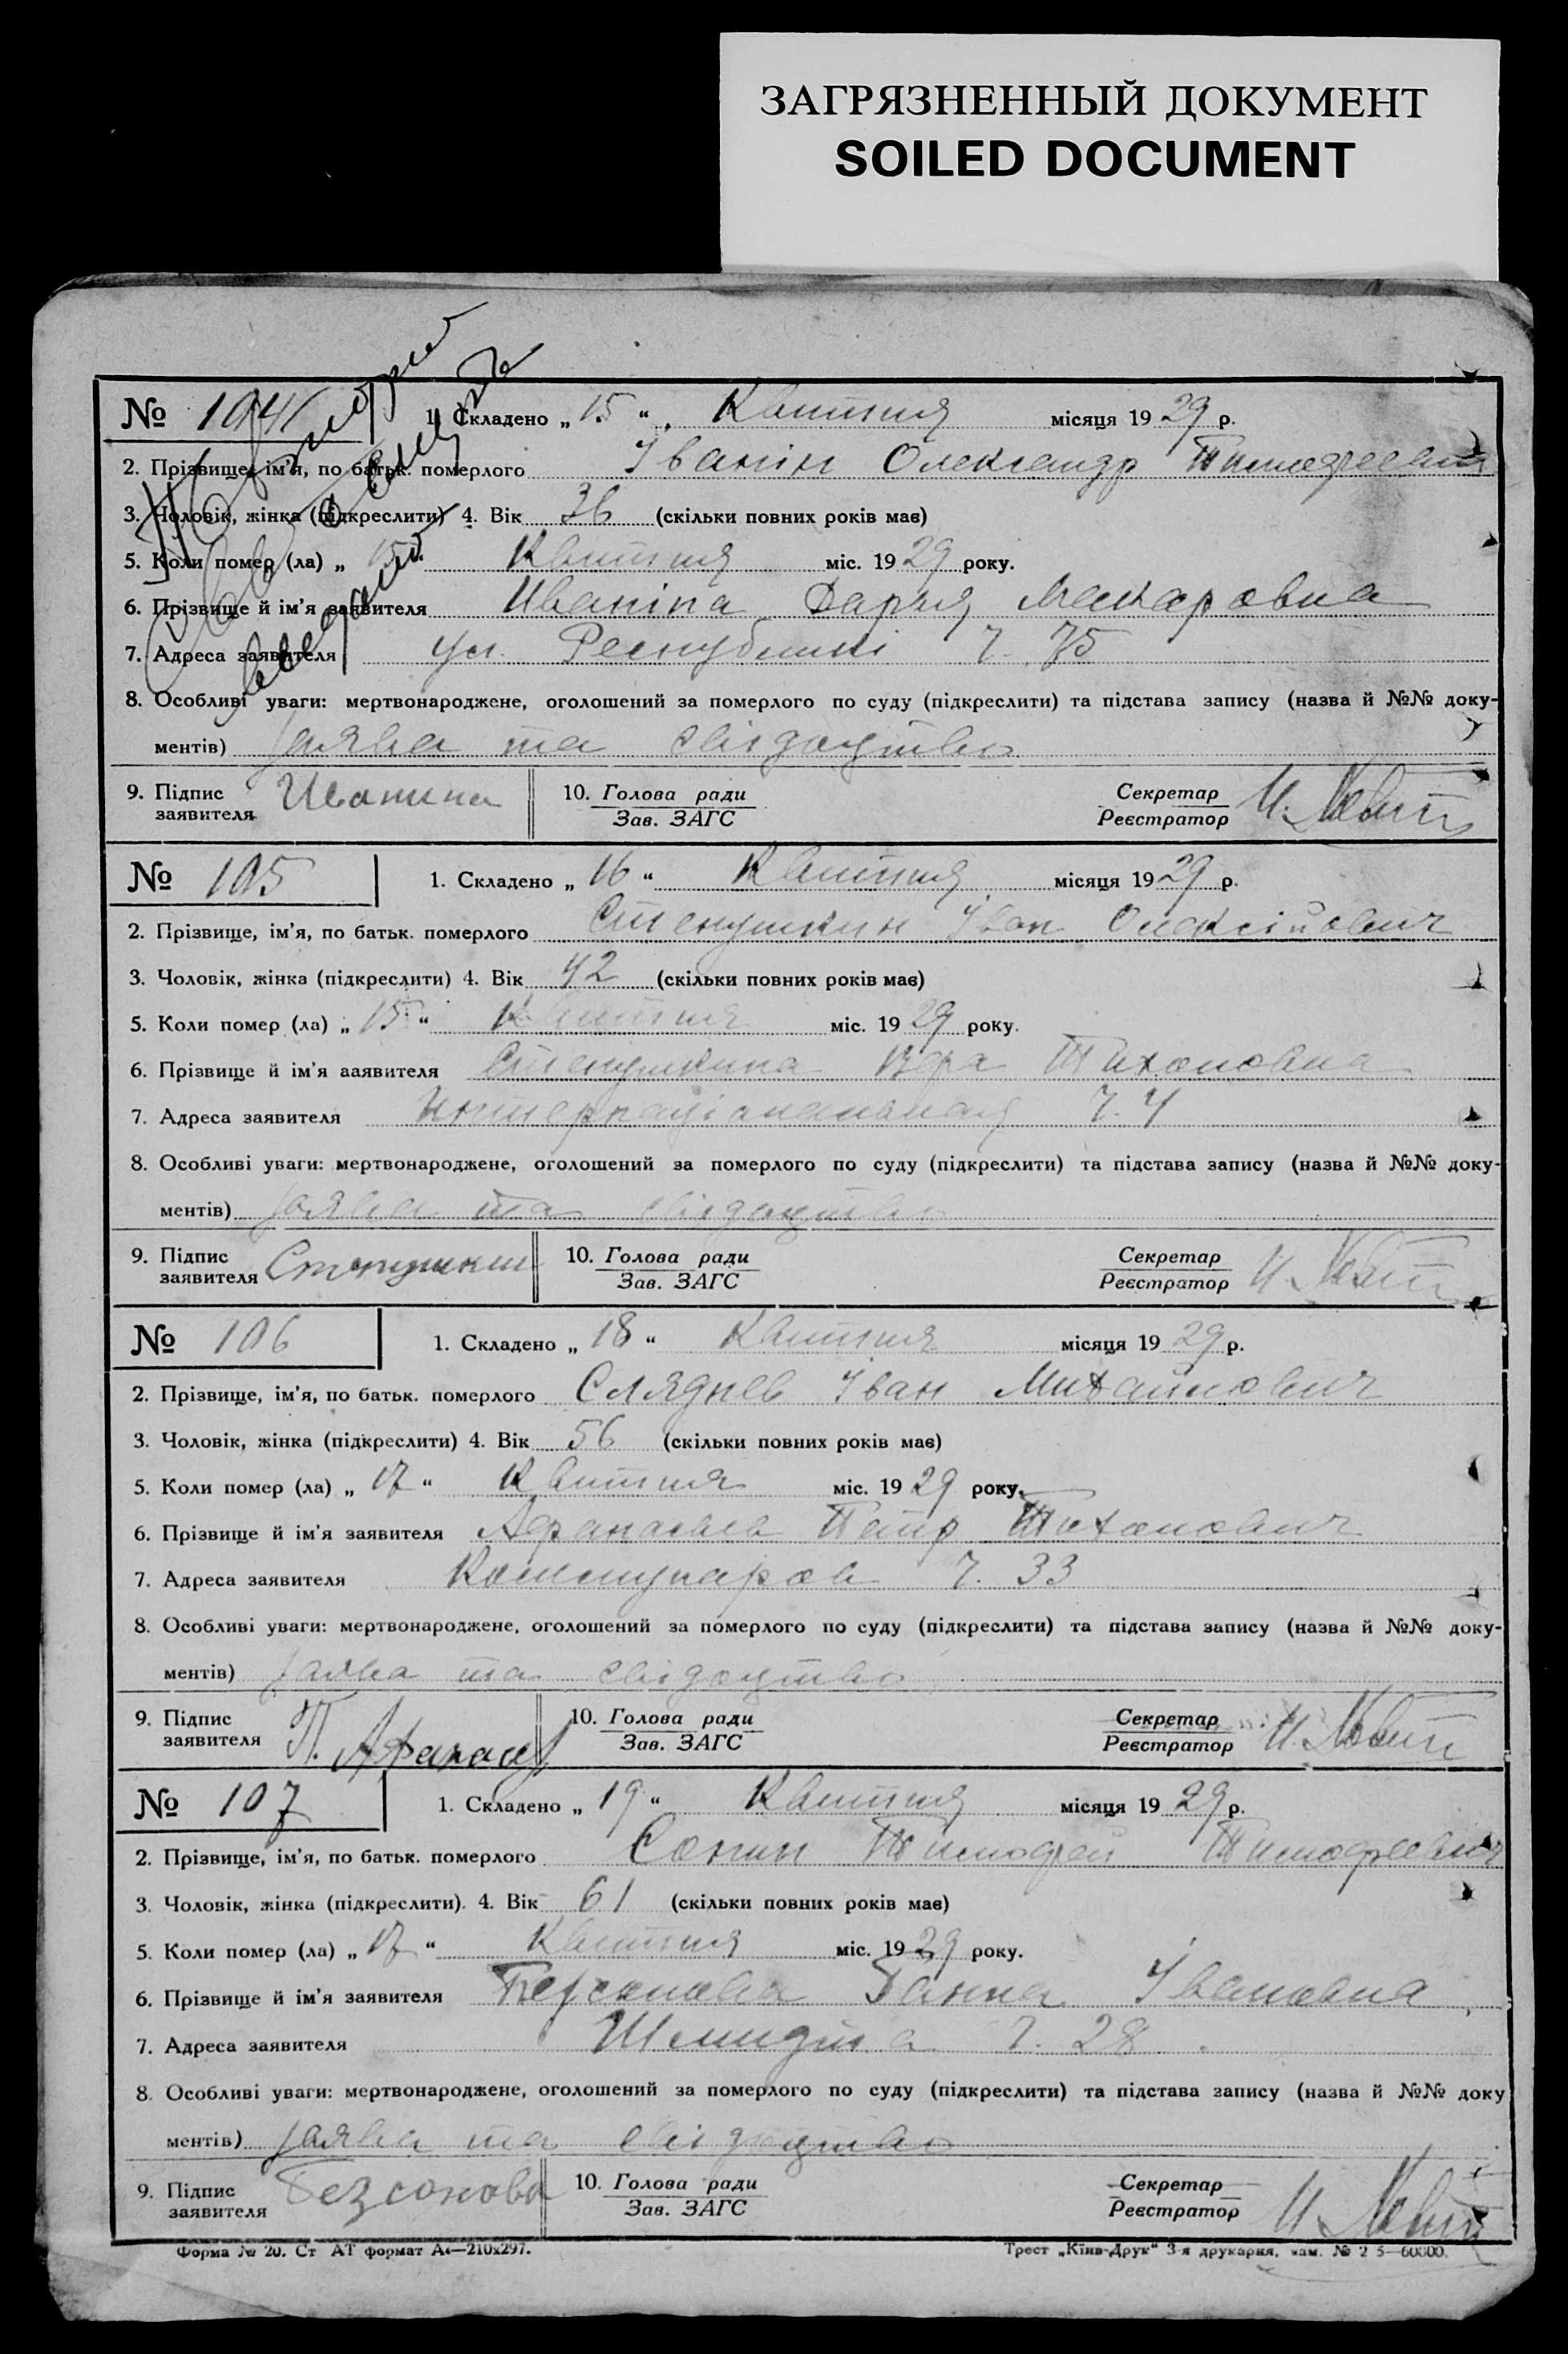 ЗАГРЯЗНЕННЫЙ ДОКУМЕНТ
SOILED DOCUMENT
№ 104 1. Складено „ 15 “ Квітня місяця 19 29 р.
2. Прізвище, ім'я, по батьк. померлого Іванін Олександр Тимофеевич
3. Чоловік, жінка (підкреслити) 4. Вік 36 (скільки повних років має)
5. Коли помер (ла) „ 15 “ Квітня міс. 19 29 року.
6. Прізвище й ім'я заявителя Иваніна Дарья Макаровна
7. Адреса заявителя ул. Республікі ч. 75
8. Особливі уваги: мертвонароджене, оголошений за померлого по суду (підкреслити) та підстава запису (назва й №№ доку-
ментів) заява та свідоцтво
9. Підпис заявителя Иванина 10. Голова ради Зав. ЗАГС Секретар Реєстратор
№ 105 1. Складено „ 16 “ Квітня місяця 19 29 р.
2. Прізвище, ім'я, по батьк. померлого Стенушкин Іван Олексійович
3. Чоловік, жінка (підкреслити) 4. Вік 42 (скільки повних років має)
5. Коли помер (ла) „ 15 “ Квітня міс. 19 29 року.
6. Прізвище й ім'я ааявителя Стенушкина Вера Тихоновна
7. Адреса заявителя Интернаціанальная ч. 4
8. Особливі уваги: мертвонароджене, оголошений за померлого по суду (підкреслити) та підстава запису (назва й №№ доку-
ментів) заява та свідоцтво
9. Підпис заявителя 10. Голова ради Зав. ЗАГС Секретар Реєстратор
№ 106 1. Складено „ 18 “ Квітня місяця 19 29 р.
2. Прізвище, ім'я, по батьк. померлого Сляднев Іван Михайлович
3. Чоловік, жінка (підкреслити) 4. Вік 56 (скільки повних років має)
5. Коли помер (ла) „ 17 “ Квітня міс. 19 29 року.
6. Прізвище й ім'я заявителя Афанасьев Петр Тихонович
7. Адреса заявителя Коммунаров ч. 33
8. Особливі уваги: мертвонароджене, оголошений за померлого по суду (підкреслити) та підстава запису (назва й №№ доку-
ментів) заява та свідоцтво
9. Підпис заявителя П. Афанась 10. Голова ради Зав. ЗАГС Секретар Реєстратор
№ 107 1. Складено „ 19 “ Квітня місяця 19 29 р.
2. Прізвище, ім'я, по батьк. померлого Сонин Тимофей Тимофеевич
3. Чоловік, жінка (підкреслити). 4. Вік 61 (скільки повних років має)
5. Коли помер (ла) „ 17 “ Квітня міс. 19 29 року.
6. Прізвище й ім'я заявителя Безсонова Ганна Івановна
7. Адреса заявителя Шмидта ч. 28
8. Особливі уваги: мертвонароджене, оголошений за померлого по суду (підкреслити) та підстава запису (назва й №№ доку
ментів) заява та свідоцтво
9. Підпис заявителя Безсонова 10. Голова ради Зав. ЗАГС Секретар Реєстратор
Форма № 20. Ст АТ формат А4—210х297. Трест „Київ-Друк“ 3-я друкарня, 60000.